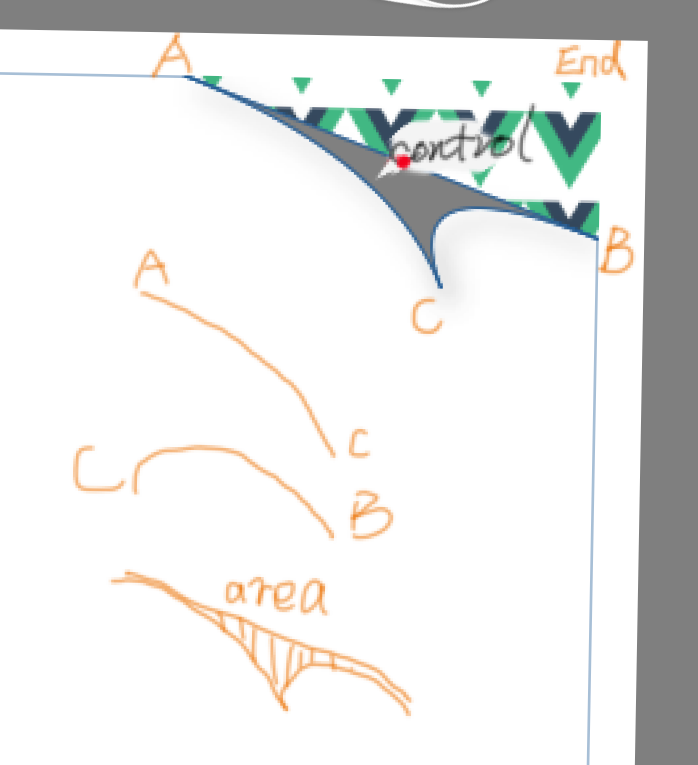 A
End
control
B
C
A
C
C
B
area